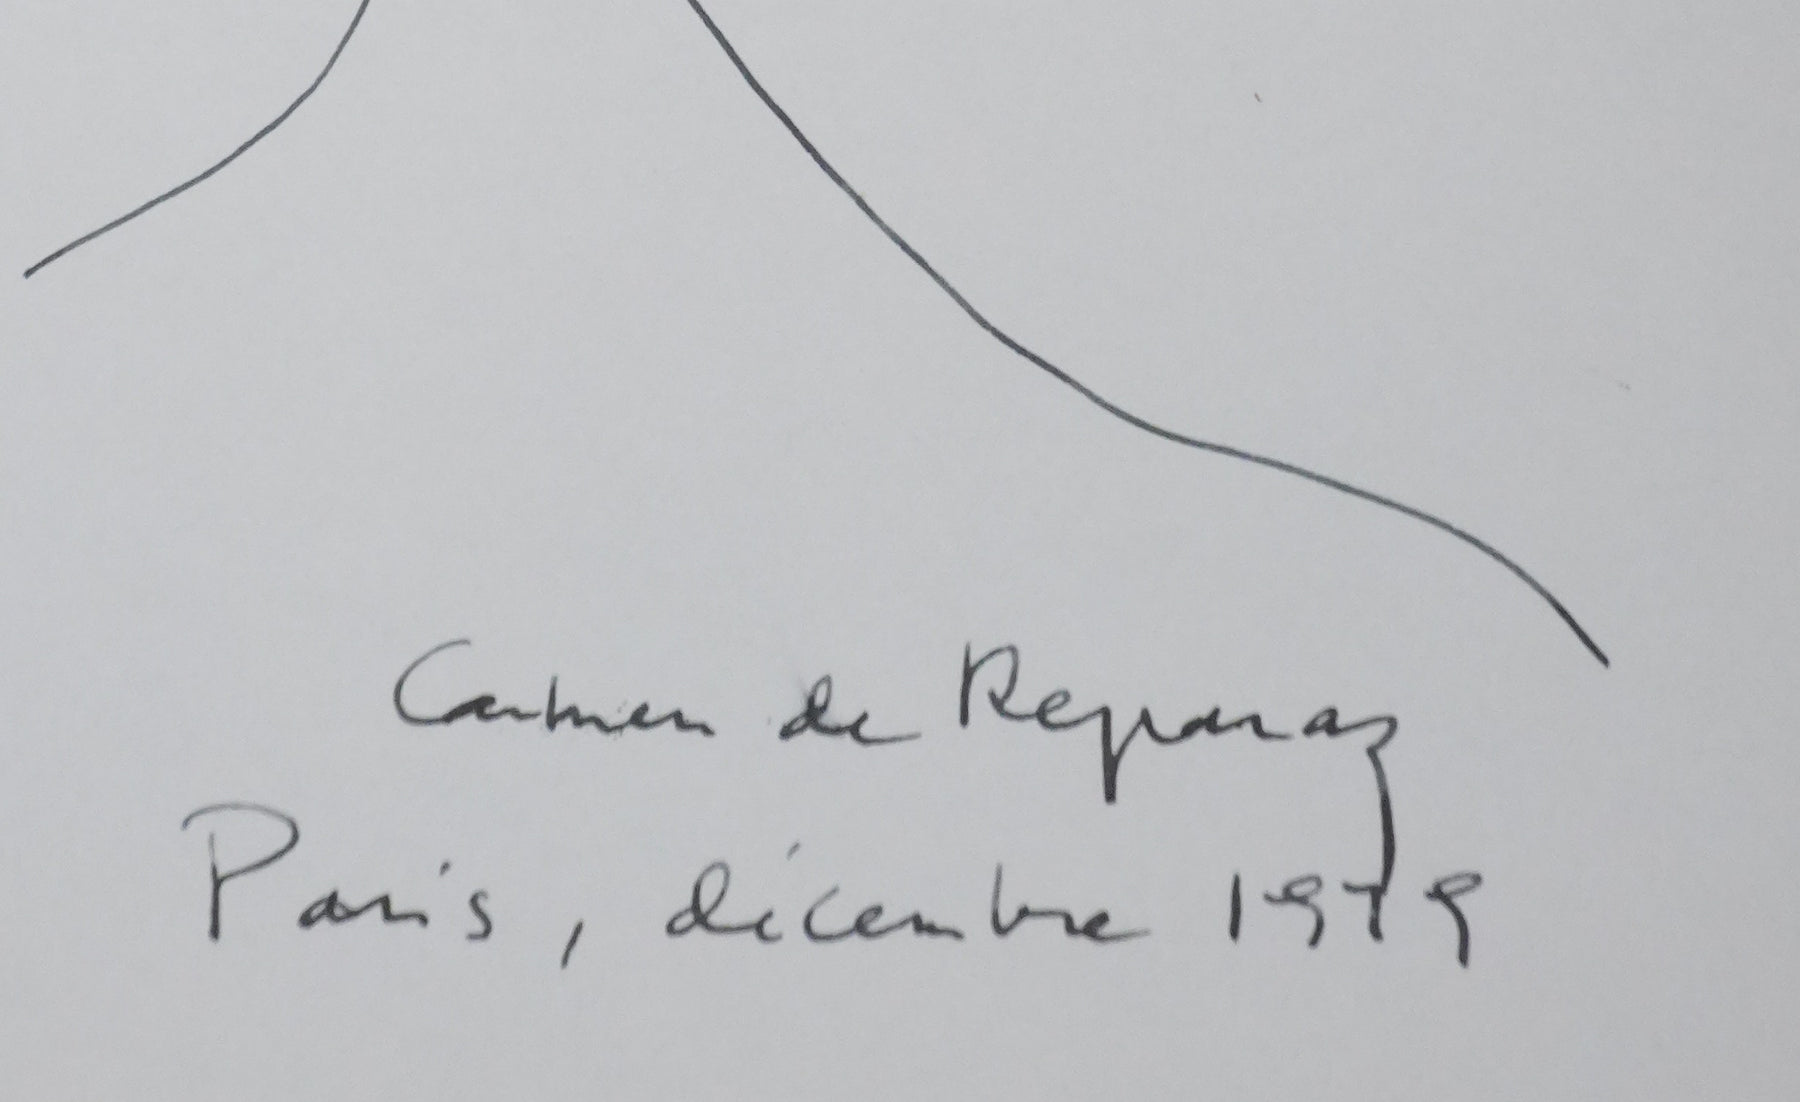 Carmen de Reparaz
Paris, décembre 1979